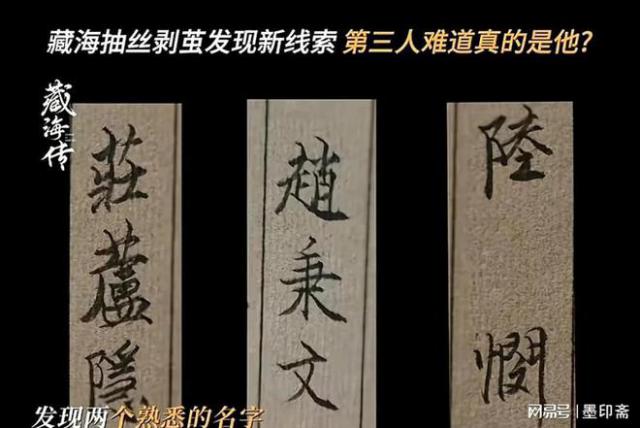 藏海抽丝剥茧发现新线索 第三人难道真的是他?
藏海传
莊蘆隱
趙秉文
陸
憫
发现两个熟悉的名字
网易号 | 墨印斋